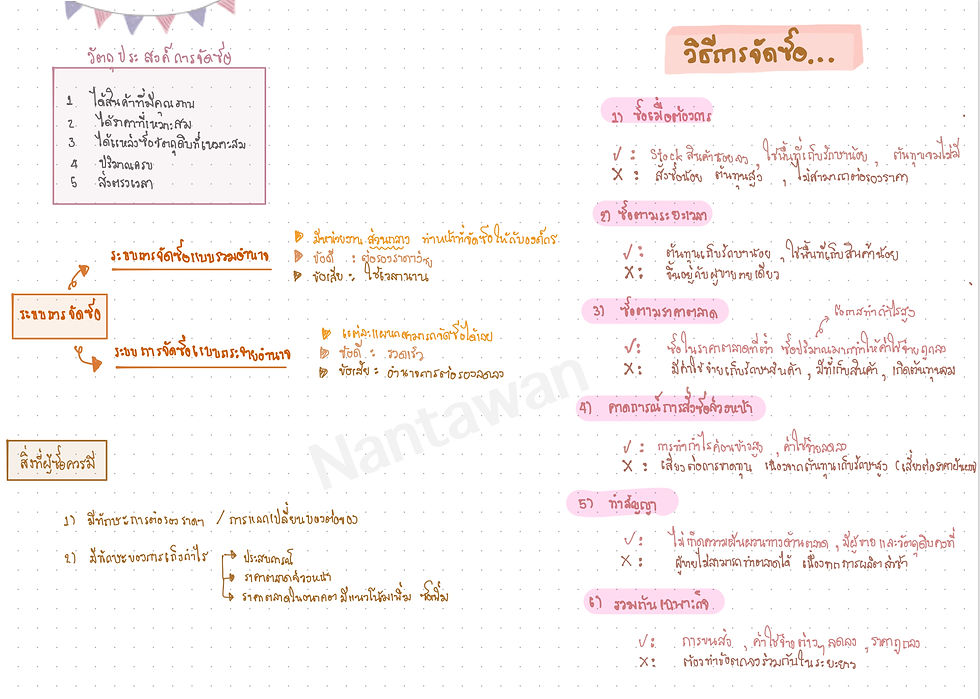 วัตถุประสงค์การจัดซื้อ
1 ได้สินค้าที่มีคุณภาพ
2. ได้ราคาที่เหมาะสม
3 ได้แหล่งซื้อวัตถุดิบที่เหมาะสม
4 ปริมาณครบ
5 ส่งตรงเวลา
ระบบการจัดซื้อ
ระบบการจัดซื้อแบบรวมอำนาจ
มีหน่วยงาน ส่วนกลาง ทำหน้าที่จัดซื้อให้กับองค์กร
ข้อดี : ต่อรองราคาง่าย
ข้อเสีย : ใช้เวลานาน
ระบบการจัดซื้อแบบกระจายอำนาจ
แต่ละแผนกสามารถจัดซื้อได้เลย
ข้อดี : รวดเร็ว
ข้อเสีย : อำนาจการต่อรองลดลง
สิ่งที่ผู้ซื้อควรมี
1) มีทักษะการต่อรองราคา / การแลกเปลี่ยนของต่อของ
2) มีทักษะของการเก็งกำไร
ประสบการณ์
ราคาตลาดล่วงหน้า
ราคาตลาดในอนาคตมีแนวโน้มเพิ่ม ซื้อเพิ่ม
วิธีการจัดซื้อ...
1) ซื้อเมื่อต้องการ
✓ : Stock สินค้าน้อยลง , ใช้พื้นที่เก็บรักษาน้อย , ต้นทุนจมไม่มี
X : สั่งซื้อน้อย ต้นทุนสูง , ไม่สามารถต่อรองราคา
2) ซื้อตามระยะเวลา
✓ : ต้นทุนเก็บรักษาน้อย , ใช้พื้นที่เก็บสินค้าน้อย
X : ขึ้นอยู่กับผู้ขายรายเดียว
3) ซื้อตามราคาตลาด
โอกาสทำกำไรสูง
✓ : ซื้อในราคาตลาดที่ต่ำ ซื้อปริมาณมากทำให้ค่าใช้จ่ายถูกลง
X : มีค่าใช้จ่ายเก็บรักษาสินค้า , มีที่เก็บสินค้า , เกิดต้นทุนจม
4) คาดการณ์การสั่งซื้อล่วงหน้า
✓ : การทำกำไรค่อนข้างสูง , ค่าใช้จ่ายลดลง
X : เสี่ยงต่อการขาดทุน เนื่องจากต้นทุนเก็บรักษาสูง (เสี่ยงต่อราคาผันผวน)
5) ทำสัญญา
✓ : ไม่เกิดความผันผวนทางด้านตลาด , มีผู้ขายและวัตถุดิบคงที่
X : ผู้ขายไม่สามารถทำตลาดได้ เนื่องจากการผลิตล่าช้า
6) รวมกันเฉพาะกิจ
✓ : การขนส่ง , ค่าใช้จ่ายต่างๆลดลง , ราคาถูกลง
X : ต้องทำข้อตกลงร่วมกันในระยะยาว
Nantawan